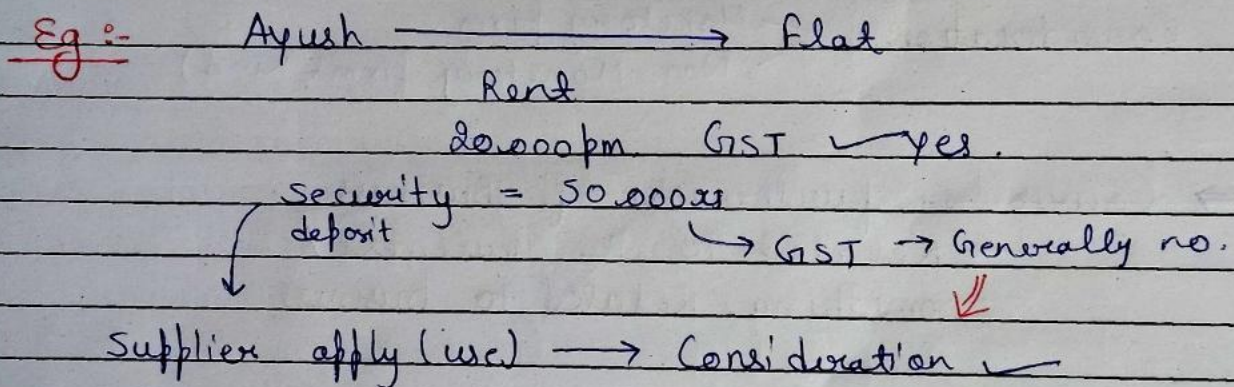 Eg :- Ayush → Flat
Rent
20,000 pm GST ✓ yes.
security = 50,000 rs
deposit
→ GST → Generally no.
Supplier apply (use) → Consideration ✓